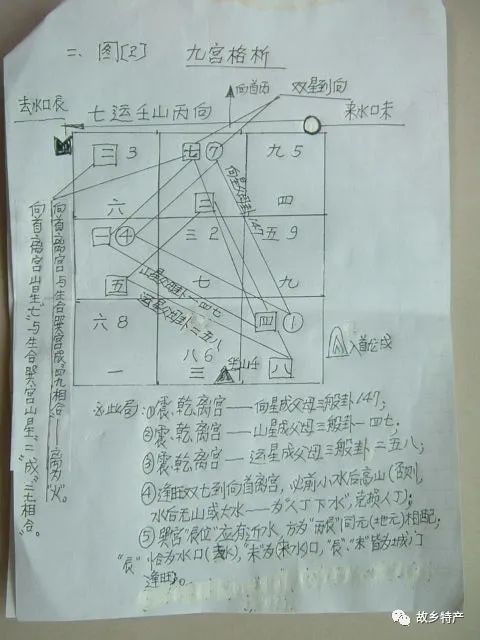 二、图[2] 九宫格析
向首丙
双星到向
去水口辰
七运壬山丙向
来水口未
三 3
七 ⑦
九 5
六
三
四
一 ④
三 2
五 9
五
七
九
六 8
八 6
四 ①
一
三
坐山壬
八
向星父母卦147
山星父母卦一四七
运星父母卦二五八
入首
向首离宫与生合巽宫成
四九相合
向首离宫山星"七"与生合巽宫山星"二"成"二七相合"。
①震、乾、离宫——向星成父母三般卦147;
②震、乾、离宫——山星成父母三般卦一四七;
③震、乾离宫——运星成父母三般卦二五八;
④逢旺双七到向首离宫,必前小水后高山(否则,
水后无山或大水——为"人丁下水",克损人丁);
⑤巽宫"辰位"应有近水,方为 同元(土地元)相配;
"辰"恰为水口(去水),"未"为(来水)口,"辰"、"未"皆为城门
逢旺。
故乡特产